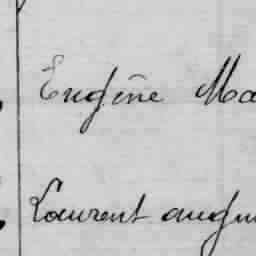 Eugène Ma
Laurent augu